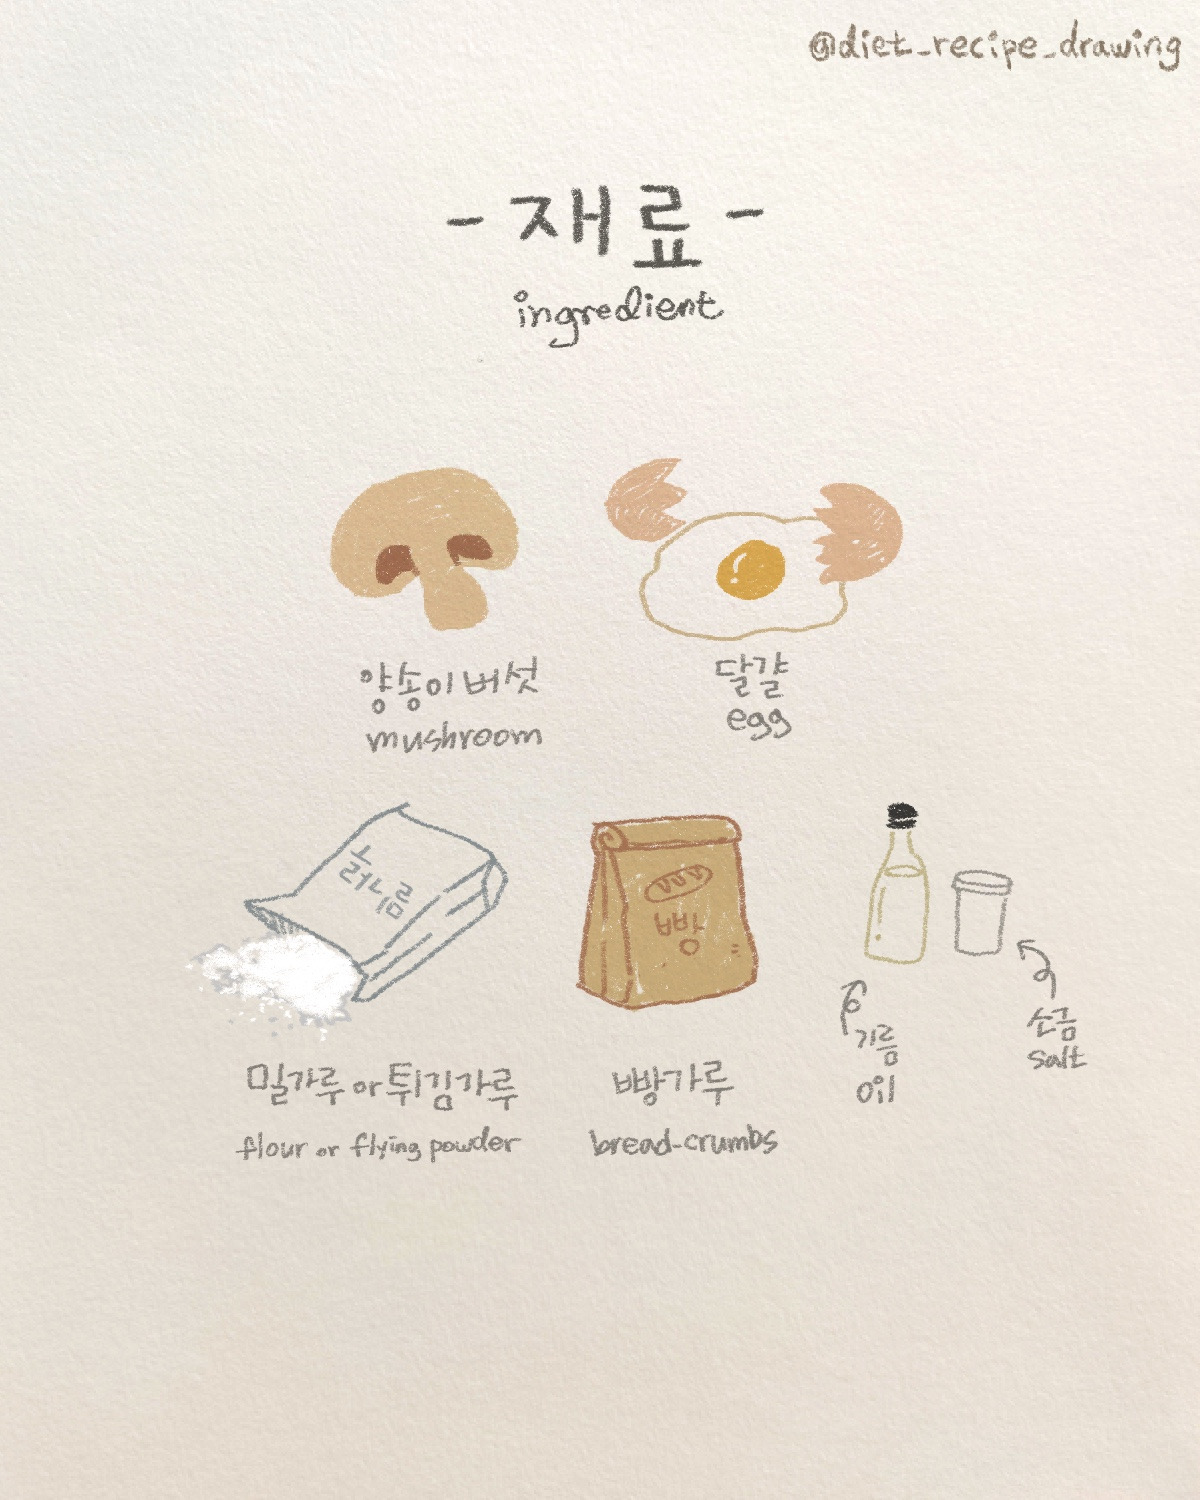 @diet_recipe_drawing
- 재료 -
ingredient
양송이버섯
mushroom
달걀
egg
빵
밀가루 or 튀김가루
flour or flying powder
빵가루
bread-crumbs
기름
oil
소금
salt